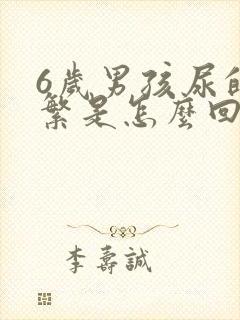 6歲男孩尿
繁是怎麼回
李壽誠